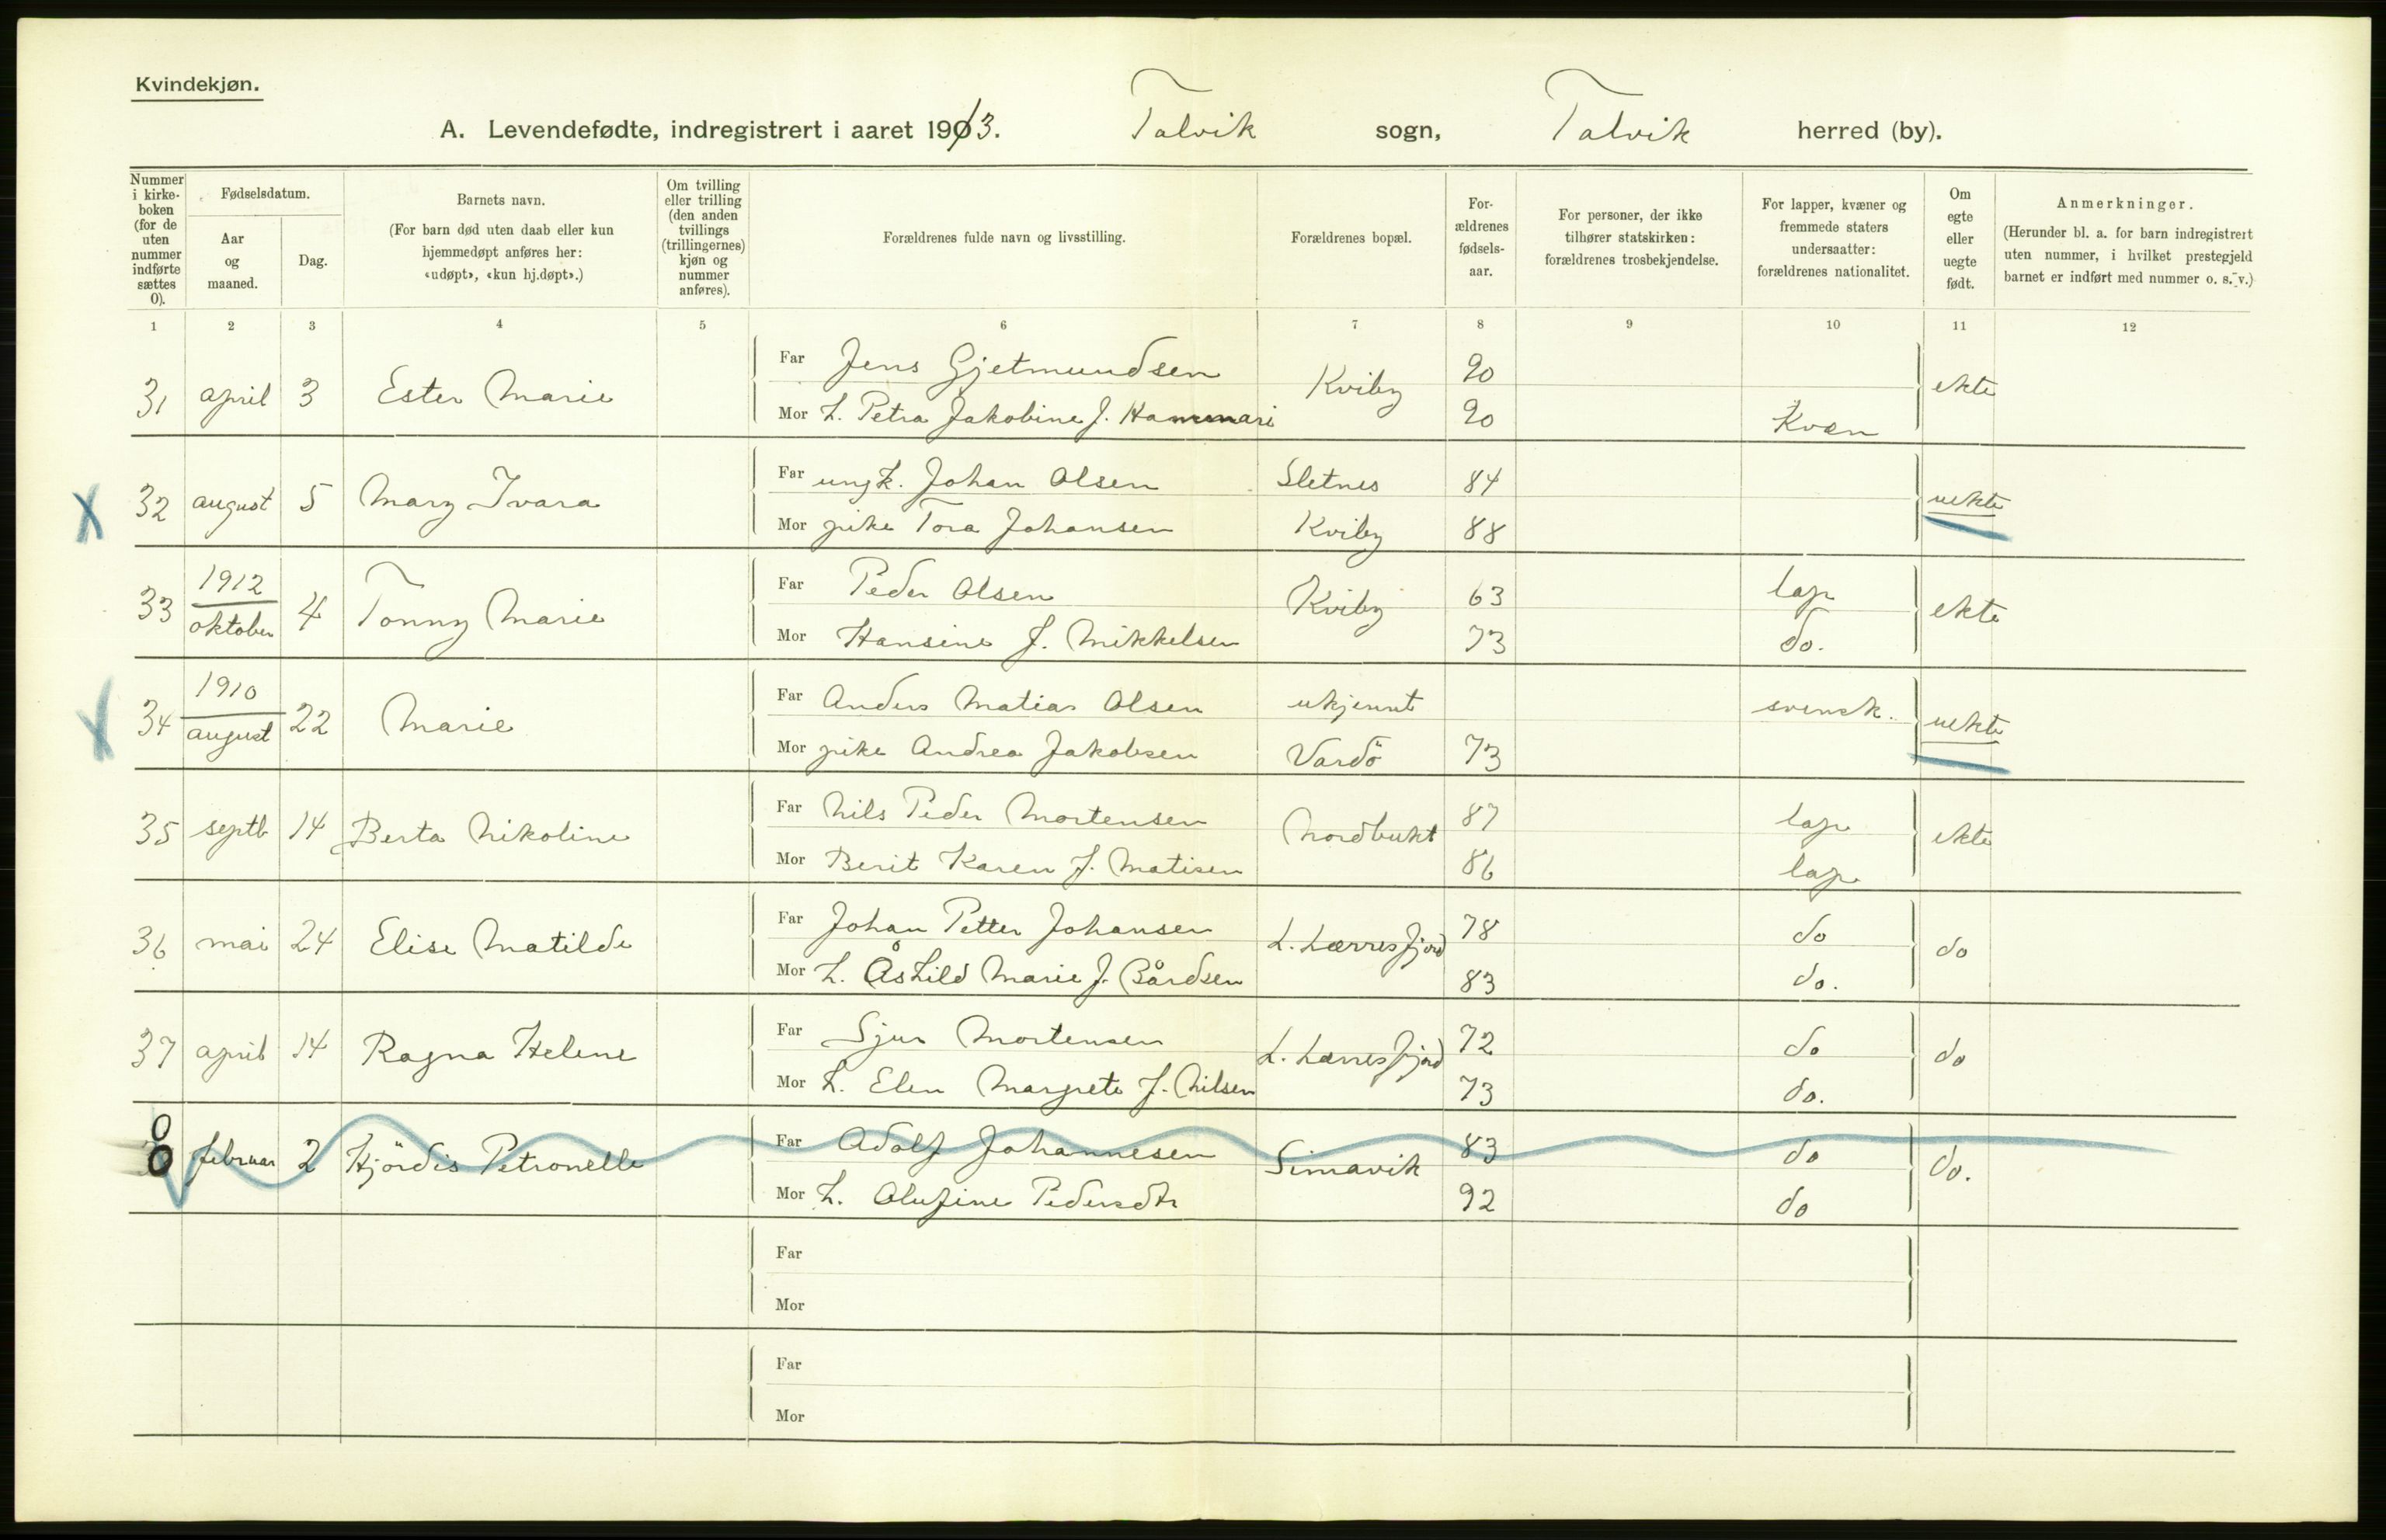 Kvindekjøn.
A. Levendefødte, indregistrert i aaret 1913. Talvik sogn, Talvik herred (by).
Nummer i kirke-boken (for de uten nummer indførte sættes 0).
Fødselsdatum.
Aar og maaned.
Dag.
Barnets navn.
(For barn død uten daab eller kun hjemmedøpt anføres her: «udøpt», «kun hj.døpt».)
Om tvilling eller trilling (den anden tvillings (trillingernes) kjøn og nummer anføres).
Forældrenes fulde navn og livsstilling.
Forældrenes bopæl.
For-ældrenes fødsels-aar.
For personer, der ikke tilhører statskirken: forældrenes trosbekjendelse.
For lapper, kvæner og fremmede staters undersaatter: forældrenes nationalitet.
Om egte eller uegte født.
Anmerkninger.
(Herunder bl. a. for barn indregistrert uten nummer, i hvilket prestegjeld barnet er indført med nummer o. s. v.)
1 2 3 4 5 6 7 8 9 10 11 12
31 april 3 Ester Marie Far Jens Gjetmundsen Kviby 90 ekte
Mor h. Petra Jakobine f. Hammari 90 Kvæn
X 32 august 5 Mary Ivara Far ungk. Johan Olsen Sletnes 84 uekte
Mor pike Tora Johansen Kviby 88
33 1912 oktober 4 Tonny Marie Far Peder Olsen Kviby 63 lap ekte
Mor Hansine f. Mikkelsen 73 do.
X 34 1910 august 22 Marie Far Anders Matias Olsen ukjennt svensk. uekte
Mor pike Andrea Jakobsen Vardö 73
35 septb 14 Berta Nikoline Far Nils Peder Mortensen Nordbukt 87 lap ekte
Mor Berit Karen f. Matisen 86 lap
36 mai 24 Elise Matilde Far Johan Petter Johansen L. Lærresfjord 78 do do
Mor h. Åshild Marie f. Bårdsen 83 do.
37 april 14 Ragna Helene Far Sjur Mortensen L. Lærresfjord 72 do do
Mor h. Elen Margrete f. Nilsen 73 do.
februar 2 Hjördis Petronelle Far Adolf Johannesen Simavik 83 do do.
Mor h. Olufine Pedersdtr 92 do
Far
Mor
Far
Mor